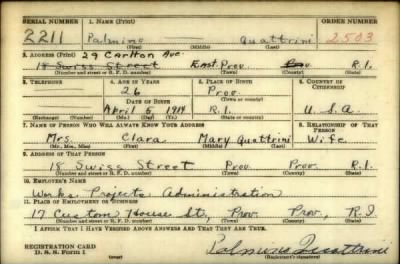 SERIAL NUMBER 1. NAME (Print) ORDER NUMBER
2211 Palmino Quattrini 2503
(First) (Middle) (Last)
29 Carlton Ave.
2. ADDRESS (Print)
18 Swiss Street East Prov. R.I.
(Number and street or R. F. D. number) (Town) (County) (State)
3. TELEPHONE 4. AGE IN YEARS 5. PLACE OF BIRTH 6. COUNTRY OF CITIZENSHIP
26 Prov.
DATE OF BIRTH (Town or county)
April 5 1914 R.I. U.S.A.
(Exchange) (Number) (Mo.) (Day) (Yr.) (State or country)
7. NAME OF PERSON WHO WILL ALWAYS KNOW YOUR ADDRESS 8. RELATIONSHIP OF THAT PERSON
Mrs. Clara Mary Quattrini Wife
(Mr., Mrs., Miss) (First) (Middle) (Last)
9. ADDRESS OF THAT PERSON
18 Swiss Street Prov. Prov. R.I.
(Number and street or R. F. D. number) (Town) (County) (State)
10. EMPLOYER'S NAME
Works Projects Administration
11. PLACE OF EMPLOYMENT OR BUSINESS
17 Custom House St., Prov. Prov., R.I.
(Number and street or R. F. D. number) (Town) (County) (State)
I AFFIRM THAT I HAVE VERIFIED ABOVE ANSWERS AND THAT THEY ARE TRUE.
REGISTRATION CARD
D. S. S. Form 1 Palmino Quattrini
(Registrant's signature)